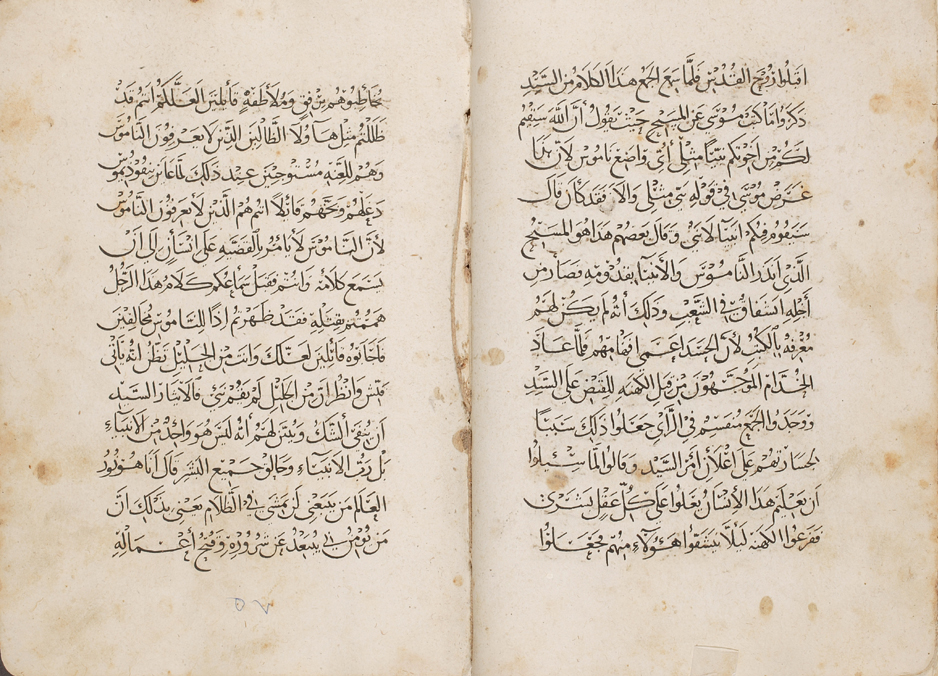 اقبلوا روح القدس فلما سمع الجمع هذا الكلام من السيد
ذكروا ما كتب موسى عن المسيح حيث يقول أن الله سيقيم
لكم من اخوتكم نبيًا مثلي أي واضع ناموس لأن
غرض موسى في قوله نبي مثلي والا فقد كان قال
سيقوم فيكم انبيا لا نبي وقال بعضهم هذا هو المسيح
الذي انذر الناموس والأنبيا بقدومه فصار من
أجله انشقاق في الشعب وذلك أنه لم يكن لهم
معرفة بالكتب لأن الحسد اعمى افهامهم فلما عاد
الخدام الموجهون من قبل الكهنة للقبض على السيد
ووجدوا الجمع منقسم في الرأي جعلوا ذلك سببًا
لجسارتهم على اعلان أمر السيد وقالوا لما سئلوا
ان تعليم هذا الإنسان يعلوا على كل عقل بشري
ففزعوا الكهنة ليلا يشقوا هؤلاء منهم فجعلوا
يخاطبوهم برفق وملاطفة قايلين لعلكم انتم قد
ظللتم مثل هاولا الظالين الذين لا يعرفون الناموس
وهم للعنة مستوجبين عند ذلك لما عاين نيقوديموس
دغلهم وبخهم قايلا انتم هم الذين لا يعرفون الناموس
لأن الناموس لا يأمر بالقضية على انسان إلى أن
يسمع كلامه وانتم فقبل سماعكم كلام هذا الرجل
هممتم بقتله فقد ظهرتم إذًا للناموس مخالفين
فأجابوه قايلين لعلك وانت من الجليل نظن انه يأتي
فتش وانظر ان من الجليل لم يقم نبي فالان اشار السيد
أن ينفي الشك ويبين لهم أنه ليس هو واحد من الانبياء
بل رب الانبياء وخالق جميع البشر قال أنا هو نور
العالم من يتبعني لن يمشي في الظلام يعني بذلك ان
من يؤمن بي يبعد عن شروره وقبح أعماله